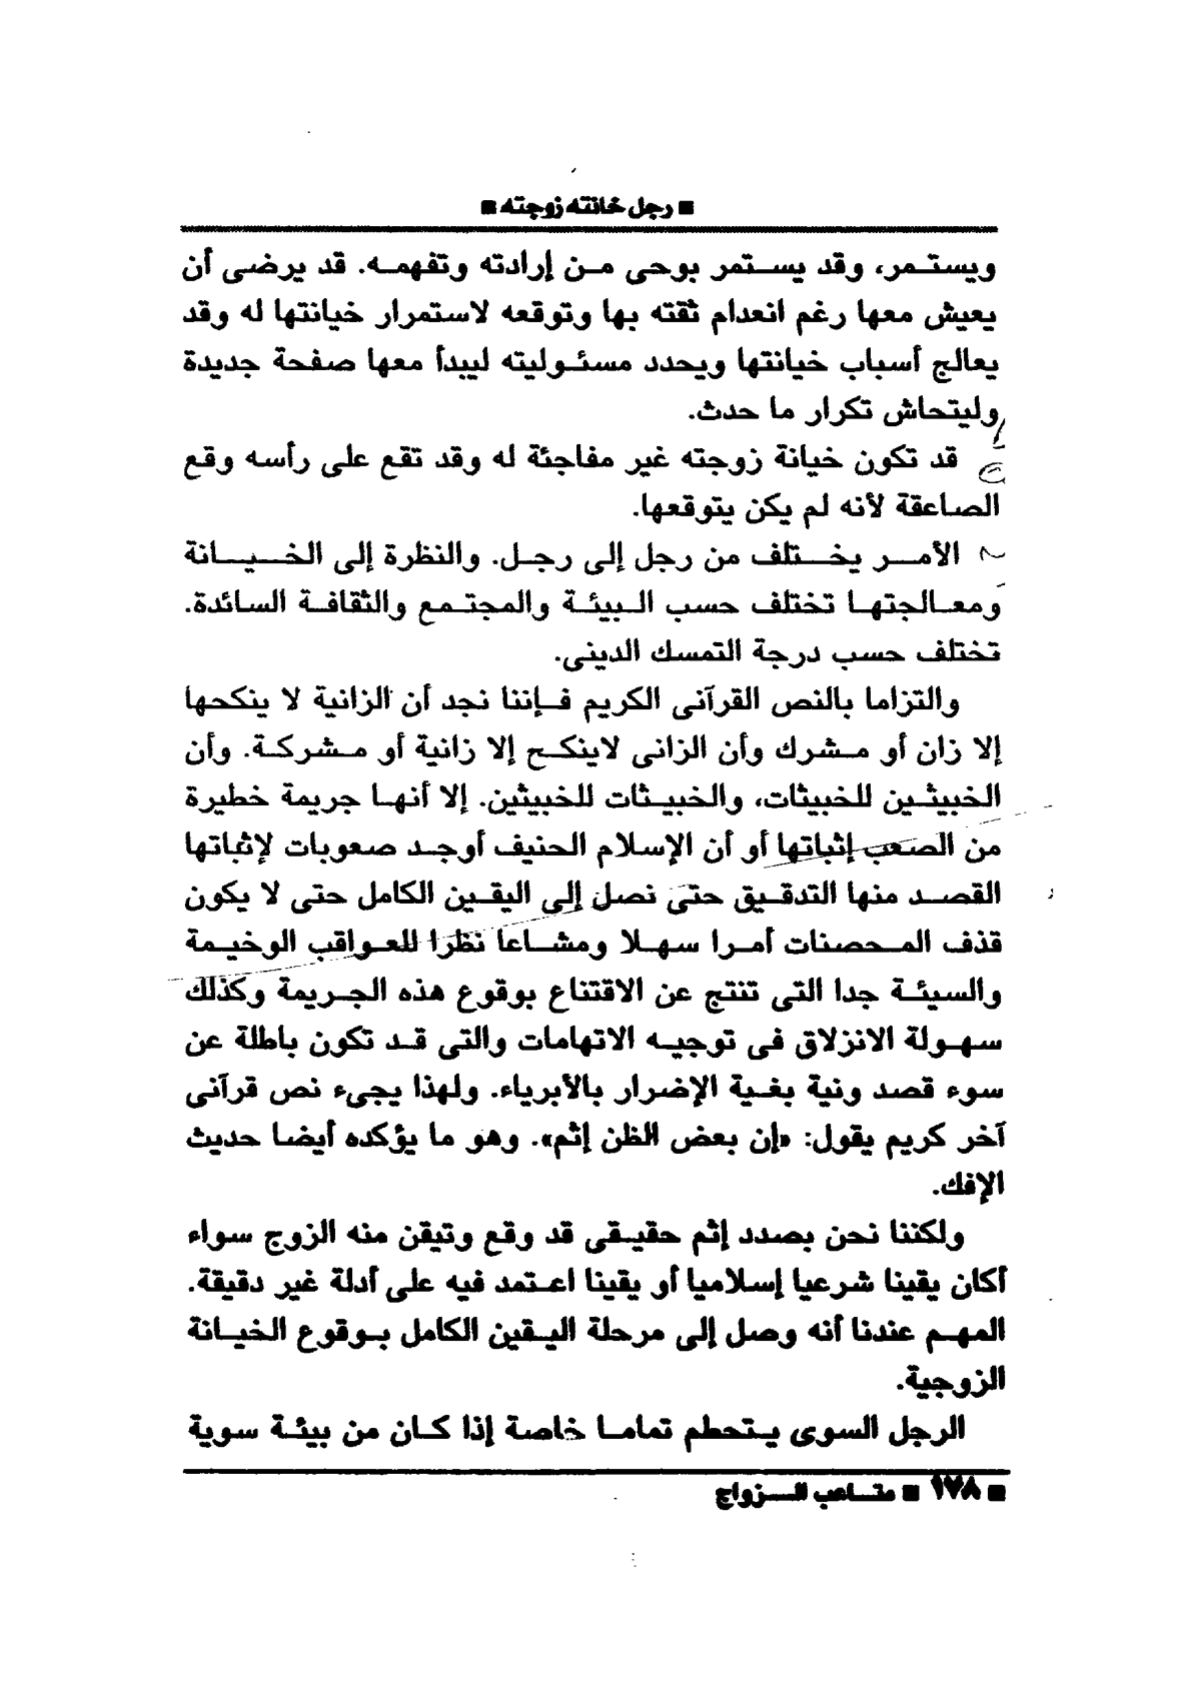 ■ رجل خانته زوجته ■
ويستمر، وقد يستمر بوحى من إرادته وتفهمه. قد يرضى أن
يعيش معها رغم انعدام ثقته بها وتوقعه لاستمرار خيانتها له وقد
يعالج أسباب خيانتها ويحدد مسئوليته ليبدأ معها صفحة جديدة
وليتحاش تكرار ما حدث.
قد تكون خيانة زوجته غير مفاجئة له وقد تقع على رأسه وقع
الصاعقة لأنه لم يكن يتوقعها.
الأمر يختلف من رجل إلى رجل. والنظرة إلى الخيانة
ومعالجتها تختلف حسب البيئة والمجتمع والثقافة السائدة.
تختلف حسب درجة التمسك الدينى.
والتزاما بالنص القرآنى الكريم فإننا نجد أن الزانية لا ينكحها
إلا زان أو مشرك وأن الزانى لاينكح إلا زانية أو مشركة. وأن
الخبيثين للخبيثات، والخبيثات للخبيثين. إلا أنها جريمة خطيرة
من الصعب إثباتها أو أن الإسلام الحنيف أوجد صعوبات لإثباتها
القصد منها التدقيق حتى نصل إلى اليقين الكامل حتى لا يكون
قذف المحصنات أمرا سهلا ومشاعا نظرا للعواقب الوخيمة
والسيئة جدا التى تنتج عن الاقتناع بوقوع هذه الجريمة وكذلك
سهولة الانزلاق فى توجيه الاتهامات والتى قد تكون باطلة عن
سوء قصد ونية بغية الإضرار بالأبرياء. ولهذا يجىء نص قرآنى
آخر كريم يقول: «إن بعض الظن إثم». وهو ما يؤكده أيضا حديث
الإفك.
ولكننا نحن بصدد إثم حقيقى قد وقع وتيقن منه الزوج سواء
أكان يقينا شرعيا إسلاميا أو يقينا اعتمد فيه على أدلة غير دقيقة.
المهم عندنا أنه وصل إلى مرحلة اليقين الكامل بوقوع الخيانة
الزوجية.
الرجل السوى يتحطم تماما خاصة إذا كان من بيئة سوية
■ ١٧٨ ■ متاعب الزواج